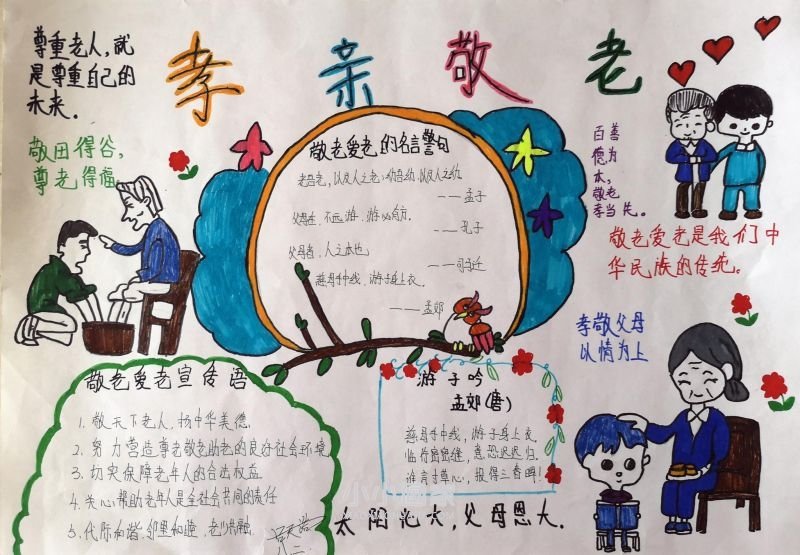 孝亲敬老
尊重老人,就
是尊重自己的
未来。
敬田得谷,
尊老得福
敬老爱老的名言警句
老吾老,以及人之老;幼吾幼,以及人之幼。
——孟子
父母在,不远游,游必有方。
——孔子
父母者,人之本也
——司马迁
慈母手中线,游子身上衣。
——孟郊
百善
德为
本,
敬老
孝当先。
敬老爱老是我们中
华民族的传统。
孝敬父母
以情为上
敬老爱老宣传语
1. 敬天下老人,扬中华美德.
2. 努力营造尊老敬老助老的良好社会环境
3. 切实保障老年人的合法权益
4. 关心帮助老年人是全社会共同的责任
5. 代际和谐.邻里和睦,老少共融.
游子吟
孟郊(唐)
慈母手中线,游子身上衣
临行密密缝,意恐迟迟归.
谁言寸草心,报得三春晖!
太阳光大,父母恩大.